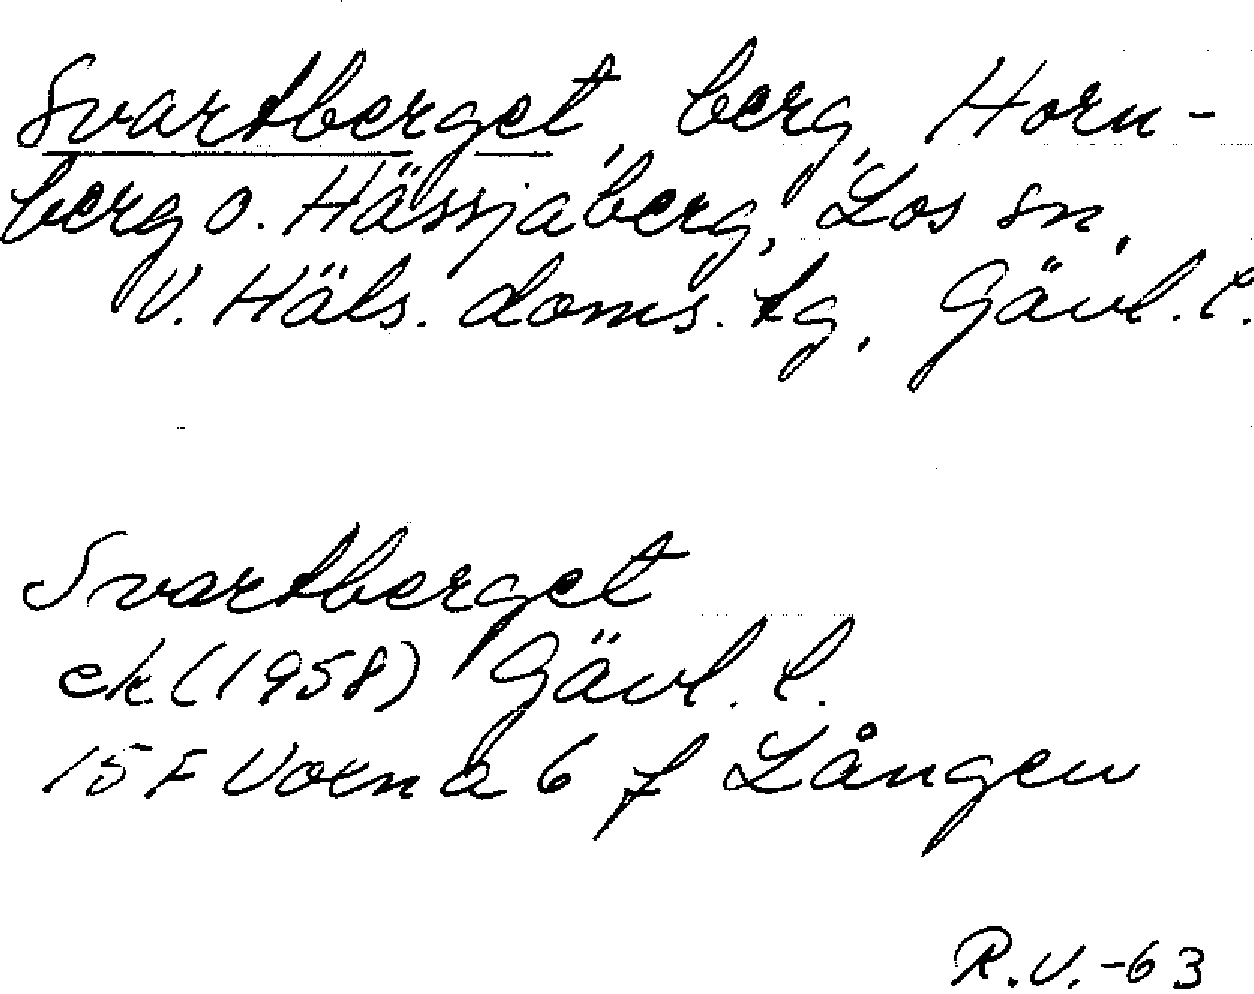 Svartberget, berg, Horn-
berg o. Hässjaberg, Los sn,
V. Häls. doms. tg, Gävl. l.
Svartberget
ek (1958) Gävl. l.
15 F Voxna 6 f Lången
R.V.-63